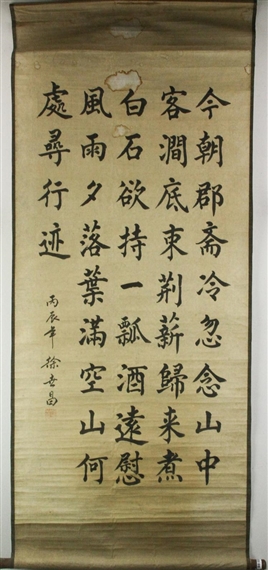 今朝郡斋冷忽念山中
客澗底束荆薪歸来煮
白石欲持一瓢酒遠慰
風雨夕落葉滿空山何
處尋行迹
丙辰年 徐世昌